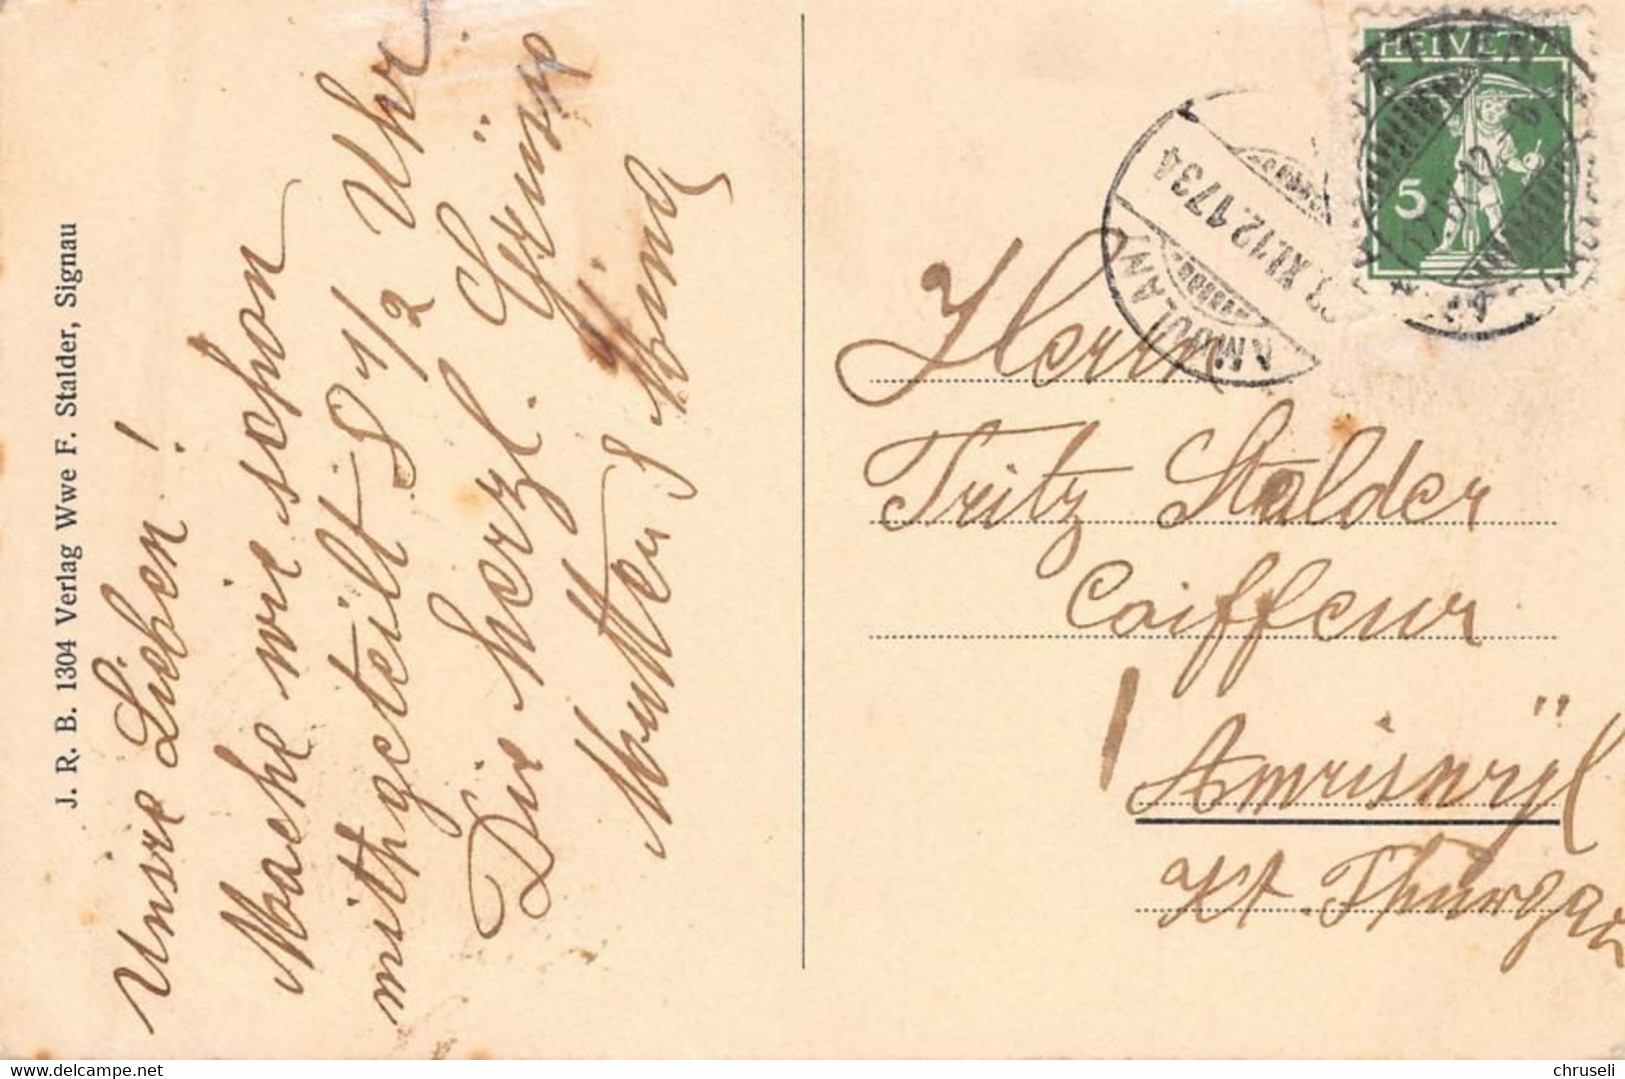 J. R. B. 1304 Verlag Wwe F. Stalder, Signau
Unsre Lieben!
Mache wie schon
mithgeteilt 8 1/2 Uhr.
Die herzl. Grüsse
Mutter
HELVETIA
5
XI.12.1734
Herrn
Fritz Stalder
Coiffeur
Amriswÿl
Kt. Thurgau
chruseli
delcampe.net